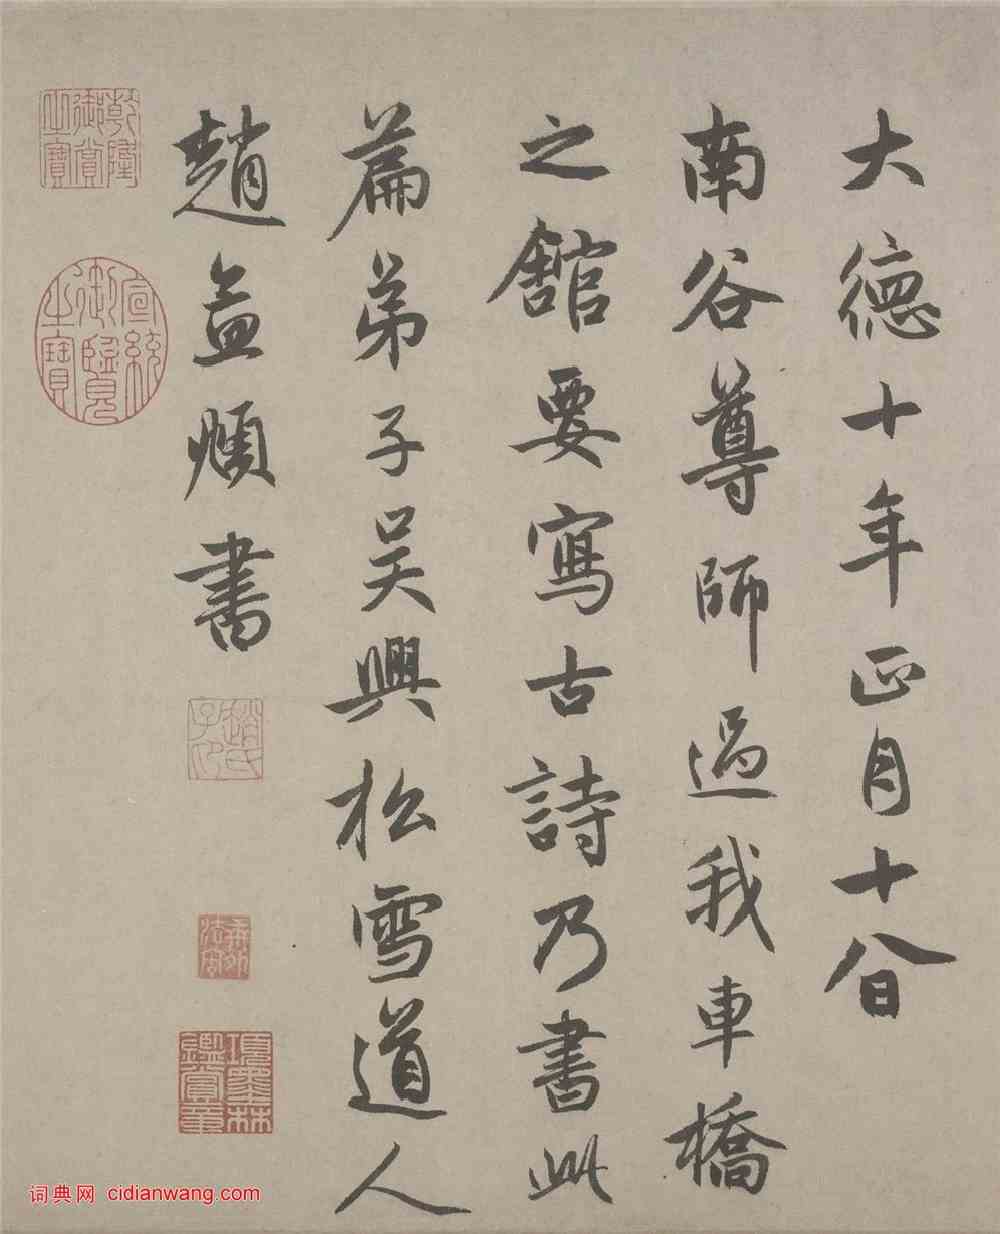 大德十年正月十八日
南谷尊師過我車橋
之館要寫古詩乃書此
篇弟子吳興松雪道人
趙孟頫書
乾隆御賞之寶
宣統御覽之寶
趙氏子昂
項墨林鑑賞章
词典网 cidianwang.com